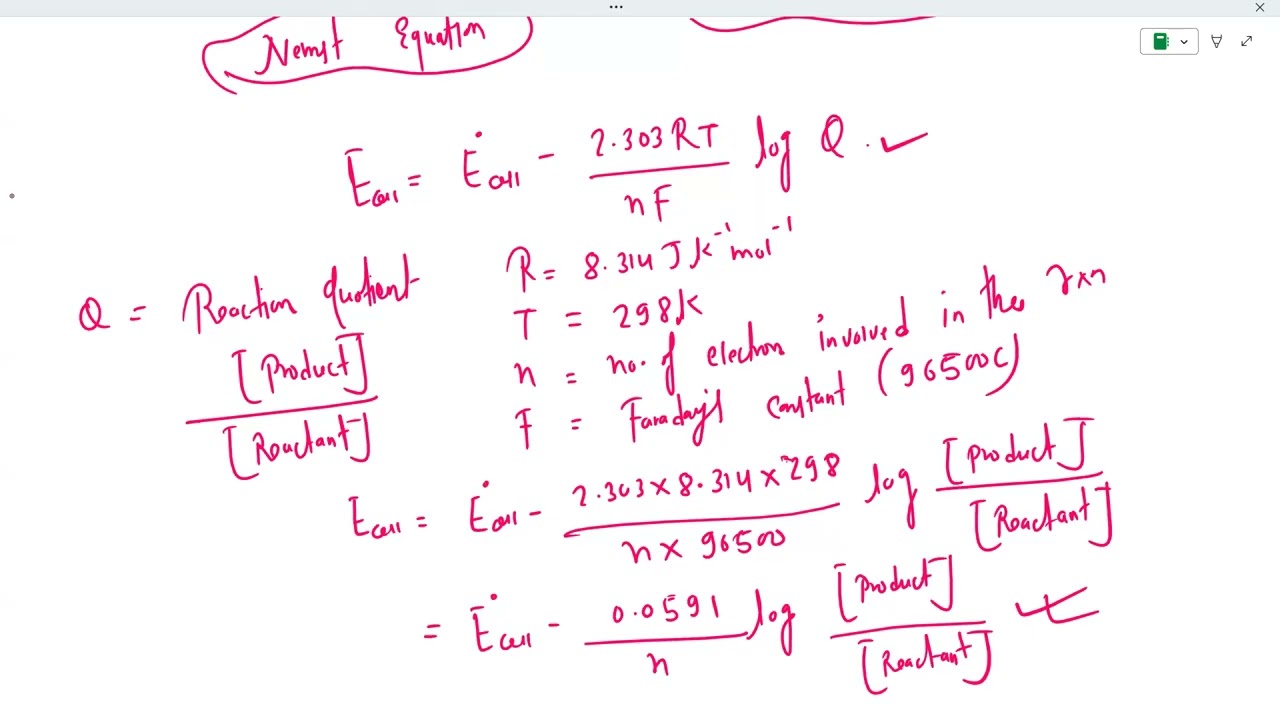 Nernst Equation
E°cell = E°cell - 2.303RT / nF log Q.
Q = Reaction quotient
[Product] / [Reactant]
R = 8.314 J K⁻¹ mol⁻¹
T = 298K
n = no. of electron involved in the rxn
F = Faraday's constant (96500C)
Ecell = E°cell - 2.303 × 8.314 × 298 / n × 96500 log [Product] / [Reactant]
= E°cell - 0.0591 / n log [Product] / [Reactant]